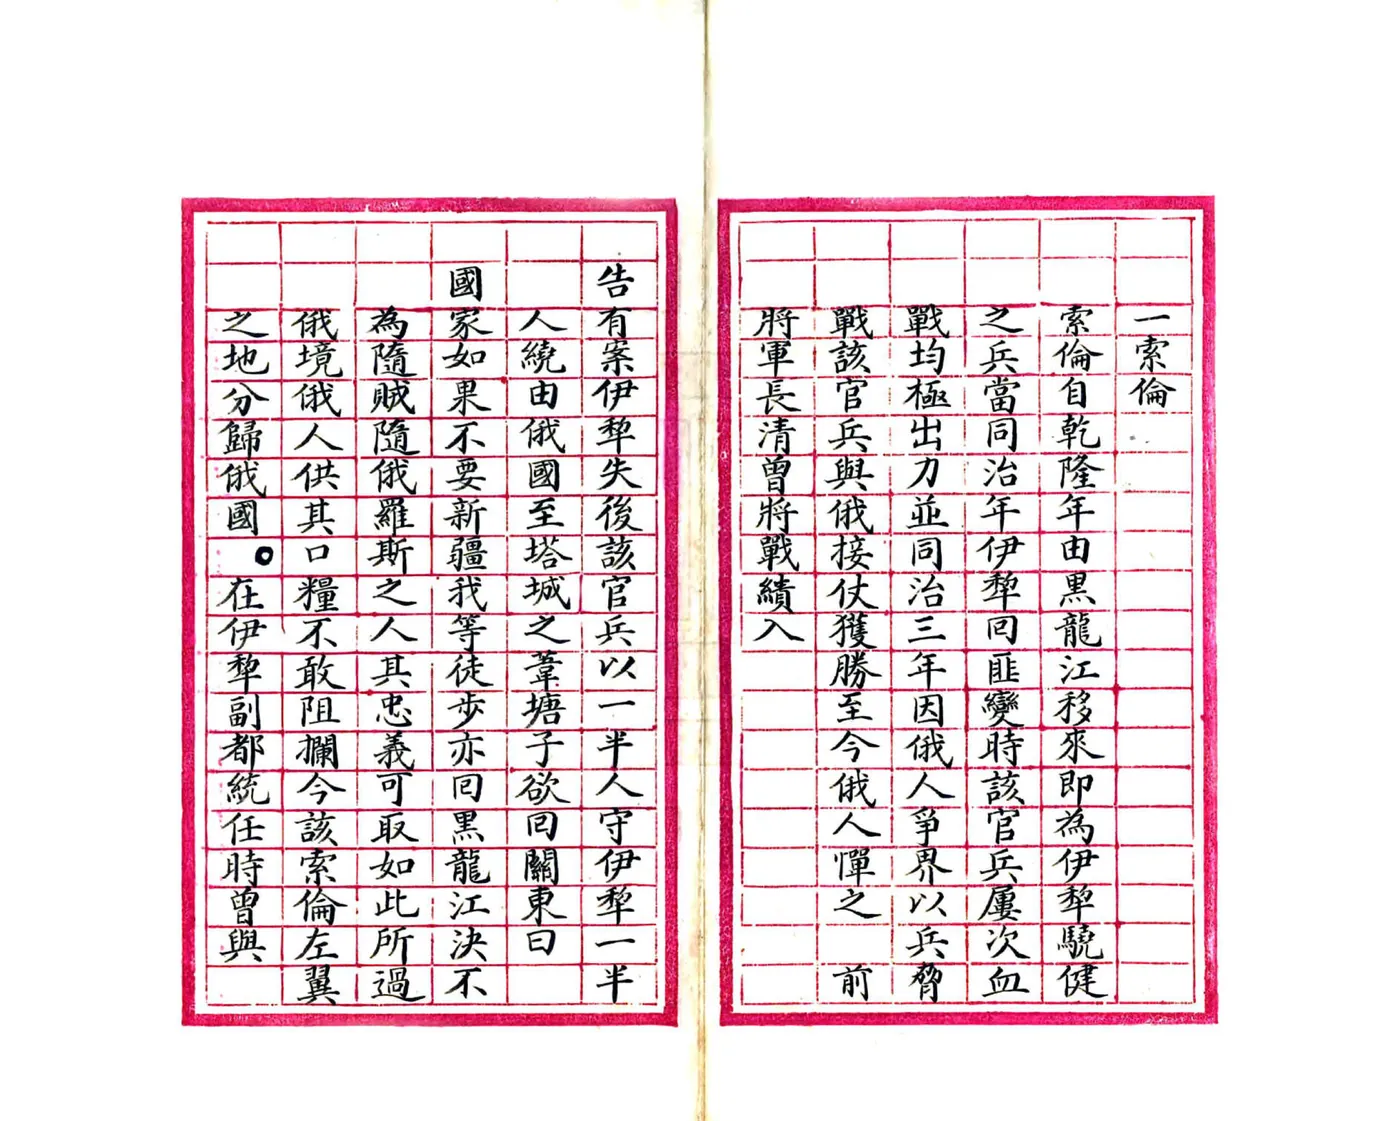 一索倫
索倫自乾隆年由黑龍江移來即為伊犂驍健
之兵當同治年伊犂回匪變時該官兵屢次血
戰均極出力並同治三年因俄人爭界以兵脅
戰該官兵與俄接仗獲勝至今俄人憚之前
將軍長清曾將戰績入
告有案伊犂失後該官兵以一半人守伊犂一半
人繞由俄國至塔城之葦塘子欲回關東曰
國家如果不要新疆我等徒步亦回黑龍江決不
為隨賊隨俄羅斯之人其忠義可取如此所過
俄境俄人供其口糧不敢阻攔今該索倫左翼
之地分歸俄國。在伊犂副都統任時曾與